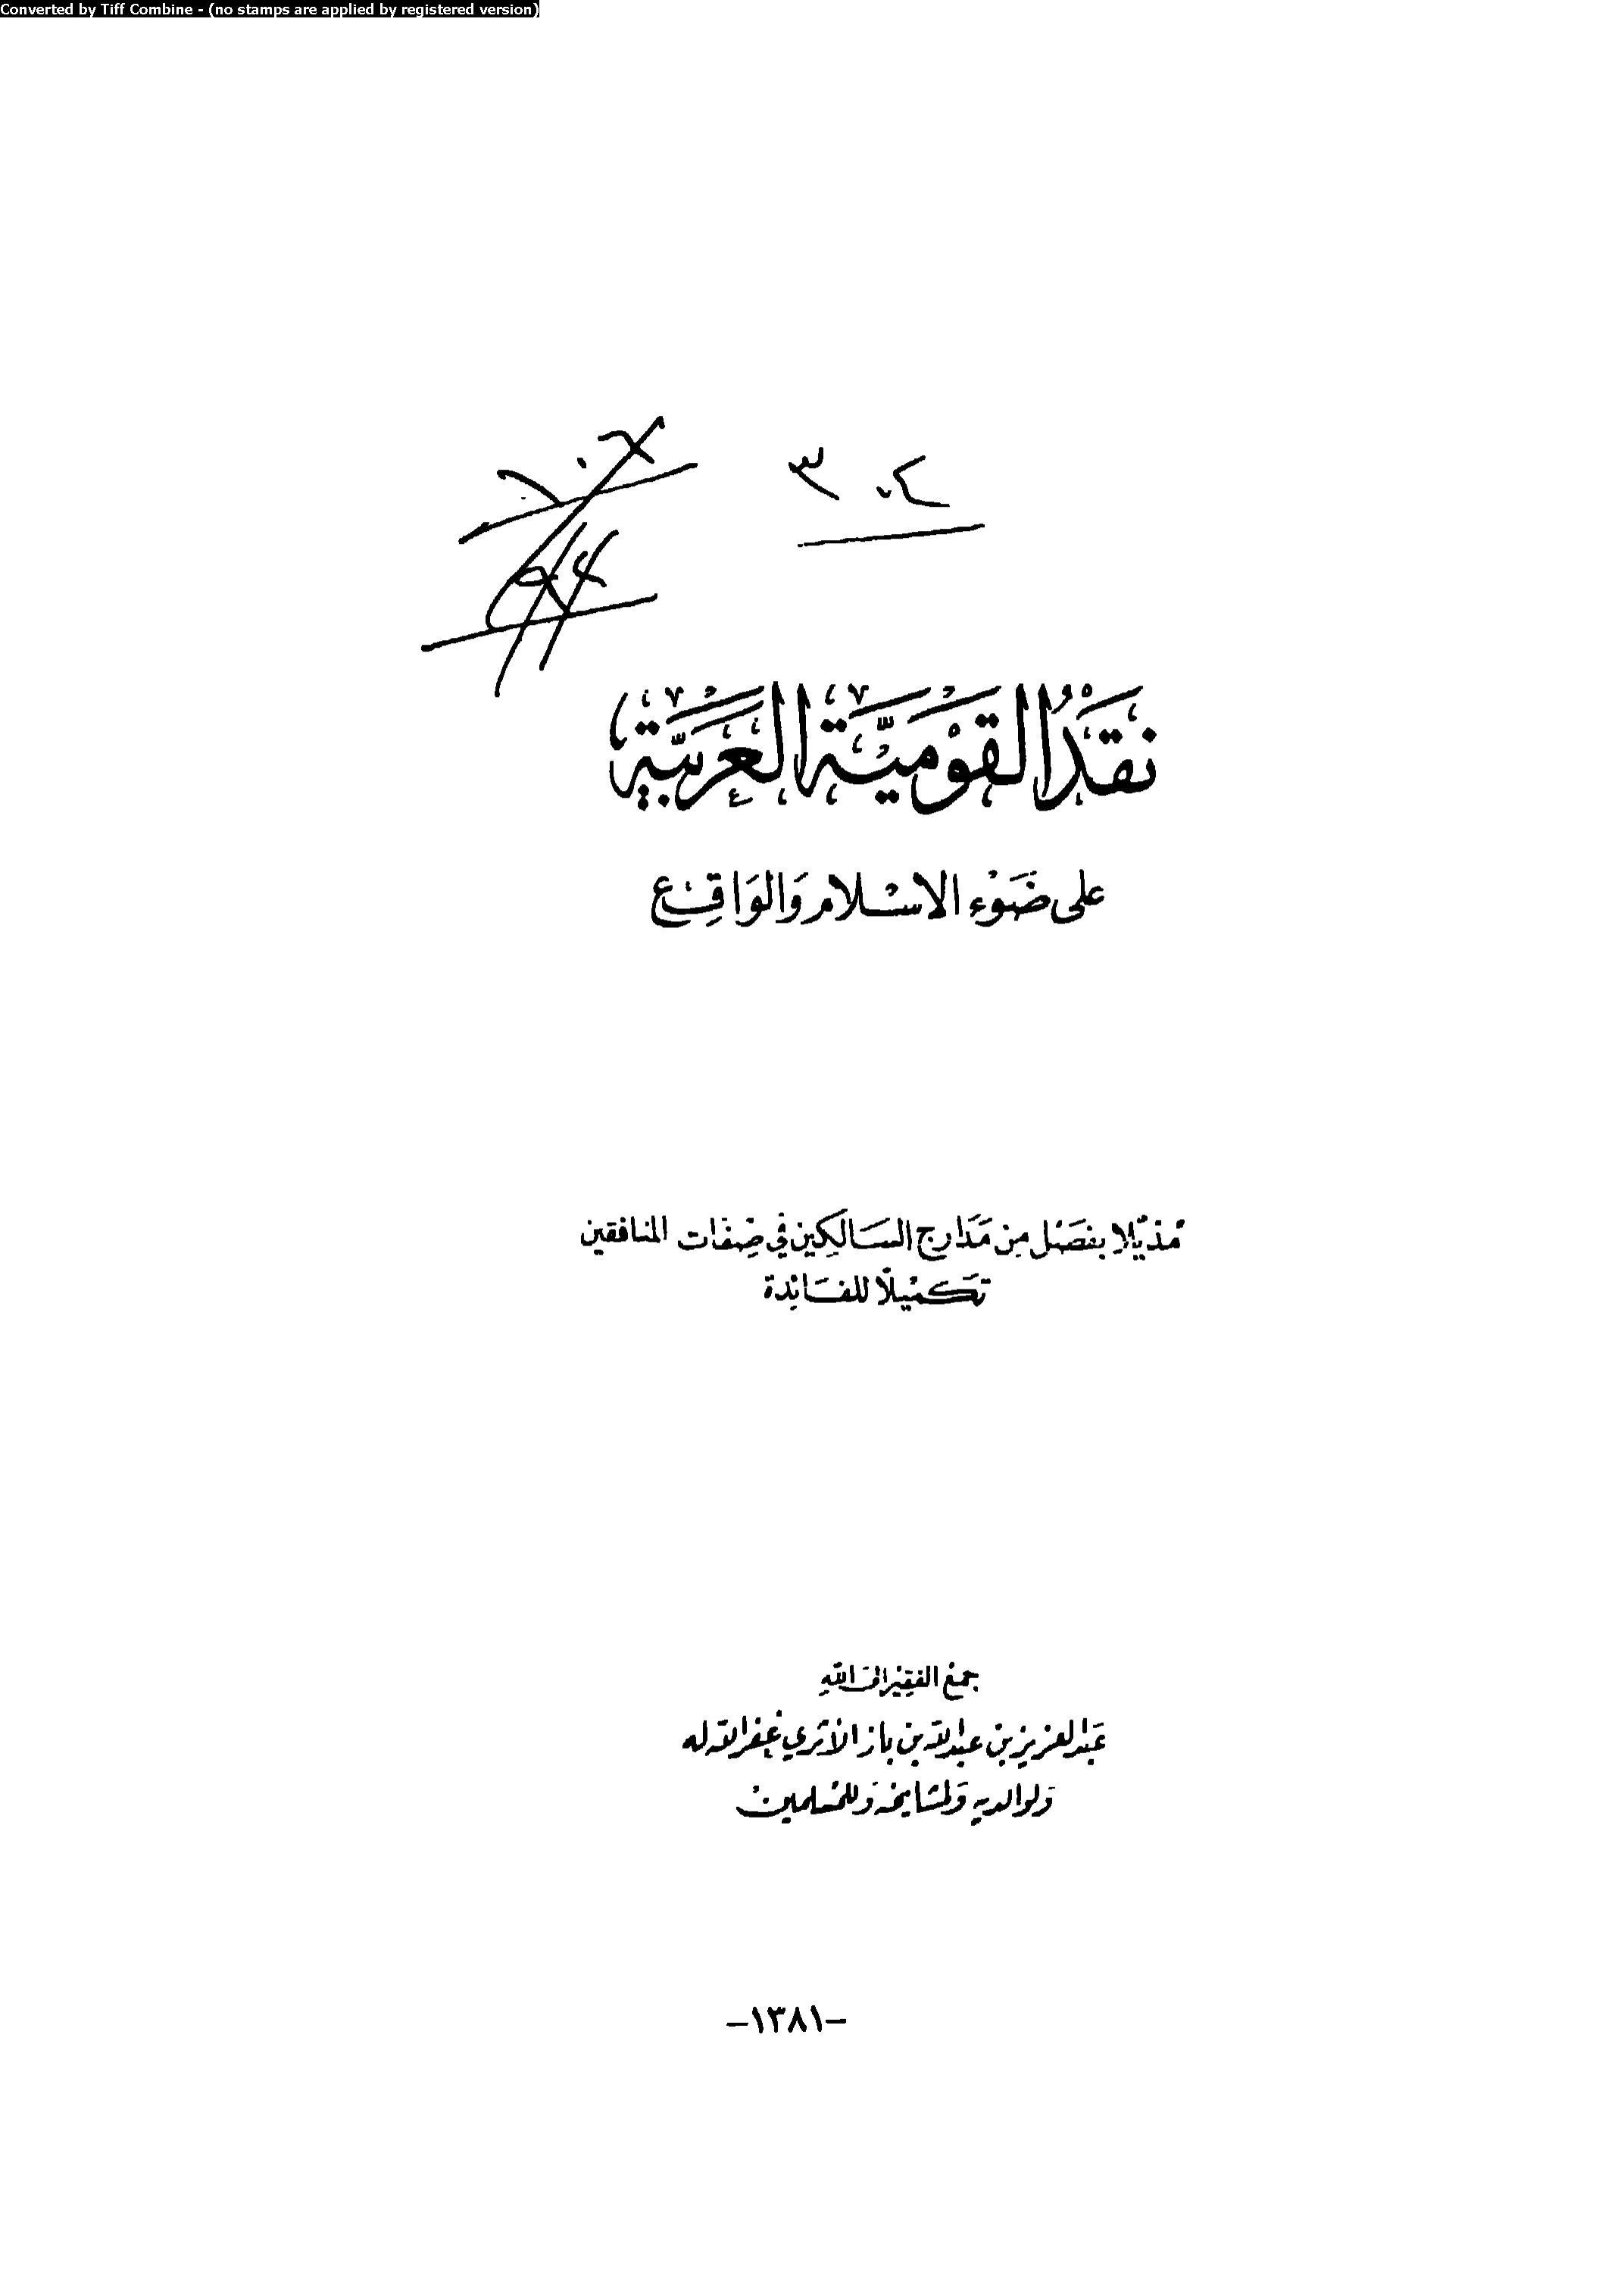 Converted by Tiff Combine - (no stamps are applied by registered version)
نَقَدُ القَوْميَّة العَربيَّةِ
على ضَوْء الاسْلام وَالوَاقِع
مُذيَّلا بفَصْل مِن مَدَارج السَالِكين في صِفَات المنافقين
تَكميْلًا للفَائِدة
جمعْ الفقِيْر الى اللّهِ
عَبد العزيز بن عبد اللّه بن باز الأثري غفر اللّه له
وَلوالديهِ وَلمشايخه وَللمْسلمين
-١٣٨١-